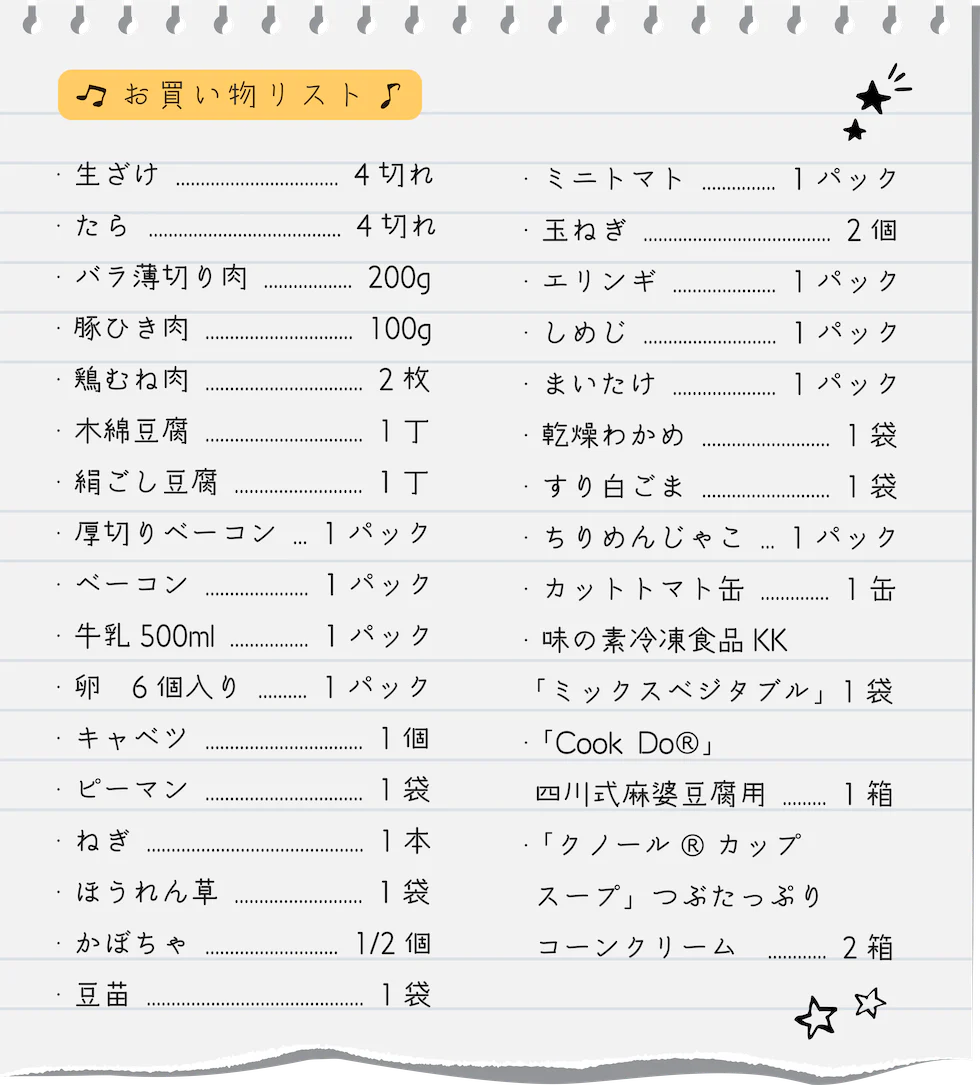 お買い物リスト
・生ざけ ........ 4切れ
・たら ........ 4切れ
・バラ薄切り肉 ........ 200g
・豚ひき肉 ........ 100g
・鶏むね肉 ........ 2枚
・木綿豆腐 ........ 1丁
・絹ごし豆腐 ........ 1丁
・厚切りベーコン ... 1パック
・ベーコン ........ 1パック
・牛乳500ml ........ 1パック
・卵　6個入り ........ 1パック
・キャベツ ........ 1個
・ピーマン ........ 1袋
・ねぎ ........ 1本
・ほうれん草 ........ 1袋
・かぼちゃ ........ 1/2個
・豆苗 ........ 1袋
・ミニトマト ........ 1パック
・玉ねぎ ........ 2個
・エリンギ ........ 1パック
・しめじ ........ 1パック
・まいたけ ........ 1パック
・乾燥わかめ ........ 1袋
・すり白ごま ........ 1袋
・ちりめんじゃこ ... 1パック
・カットトマト缶 ........ 1缶
・味の素冷凍食品KK
「ミックスベジタブル」1袋
・「Cook Do®」
四川式麻婆豆腐用 ........ 1箱
・「クノール®カップ
スープ」つぶたっぷり
コーンクリーム ........ 2箱